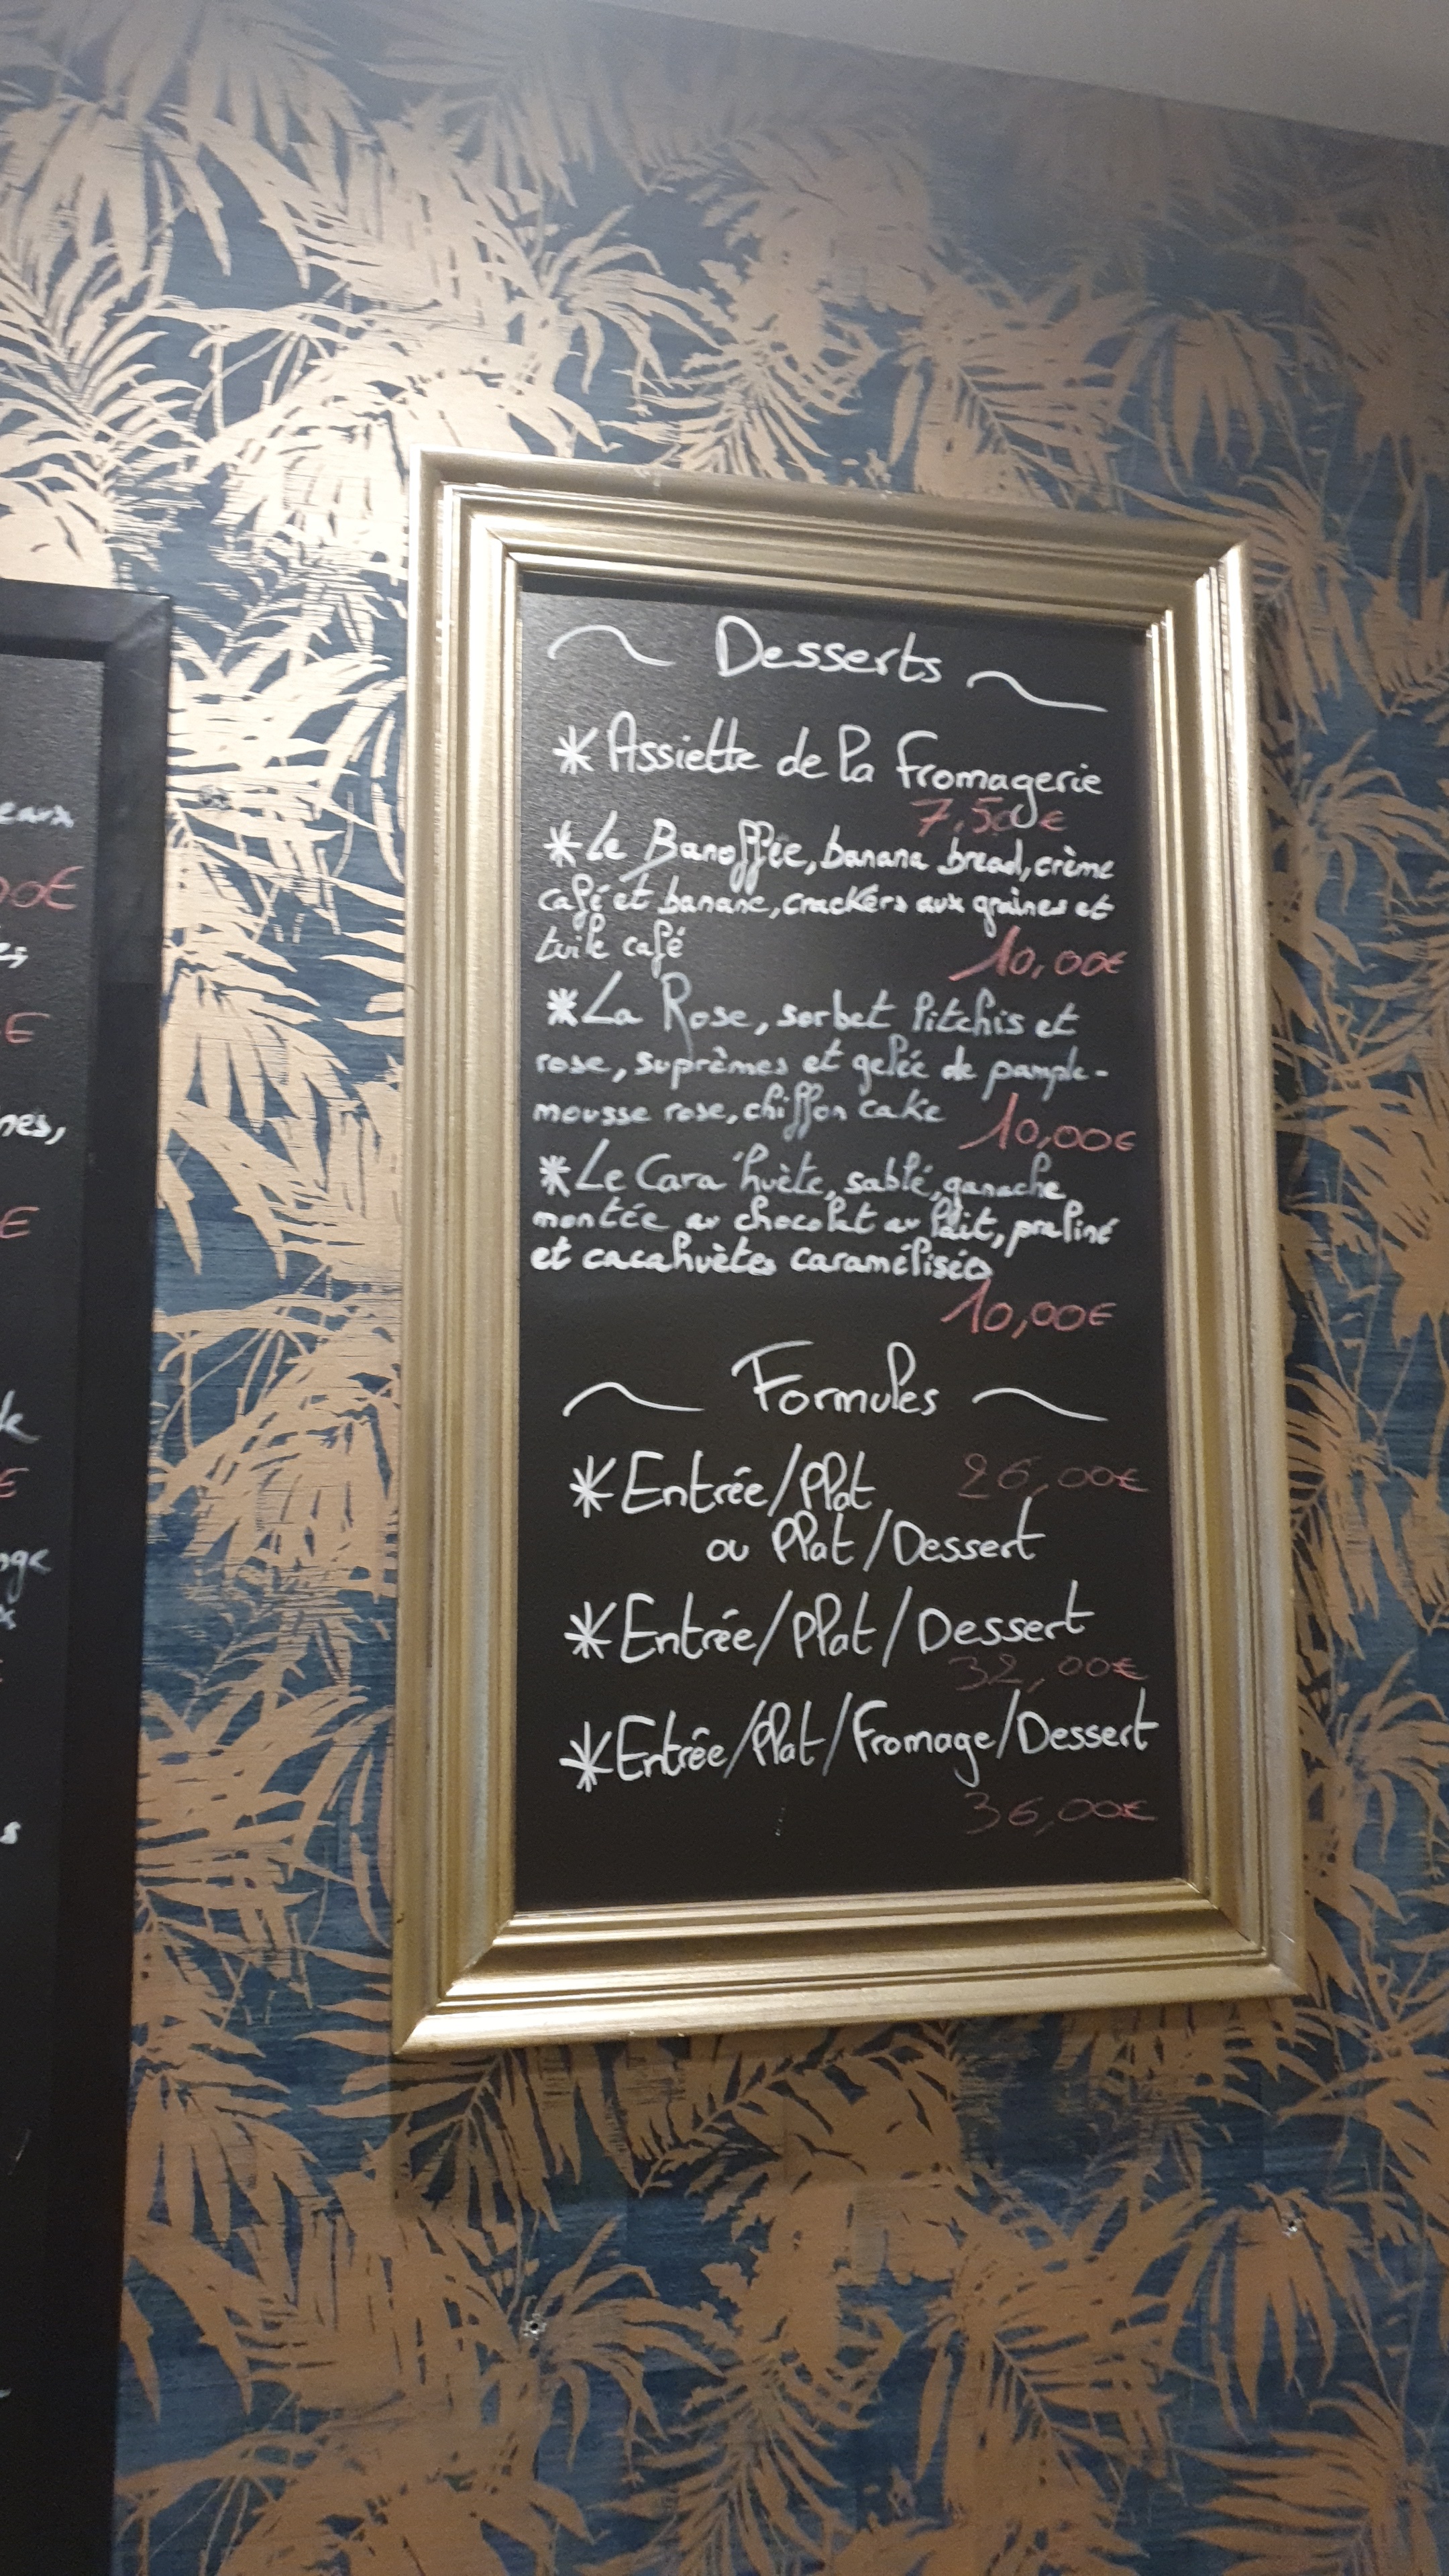 eaux
00€
es,
€
nes,
€
€
nge
s
~ Desserts ~
* Assiette de la fromagerie
7,50€
* Le Banoffee, banana bread, crème
café et banane, crackers aux graines et
tuile café 10,00€
* La Rose, sorbet litchis et
rose, suprêmes et gelée de pample-
mousse rose, chiffon cake 10,00€
* Le Cara'huète, sablé, ganache
montée au chocolat au lait, praliné
et cacahuètes caramélisées
10,00€
~ Formules ~
* Entrée/Plat 26,00€
ou Plat/Dessert
* Entrée/Plat/Dessert
32,00€
* Entrée/Plat/Fromage/Dessert
36,00€